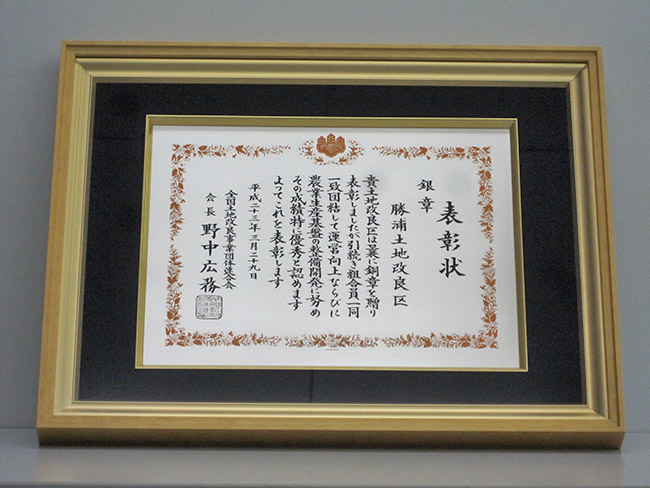 表彰状
銀章
勝浦土地改良区
貴土地改良区は曩に銅章を贈り
表彰しましたが引続き組合員一同
一致団結して運営向上ならびに
農業生産基盤の整備開発に努め
その成績特に優秀と認めます
よってこれを表彰します
平成二十三年三月二十九日
全国土地改良事業団体連合会
会長 野中広務